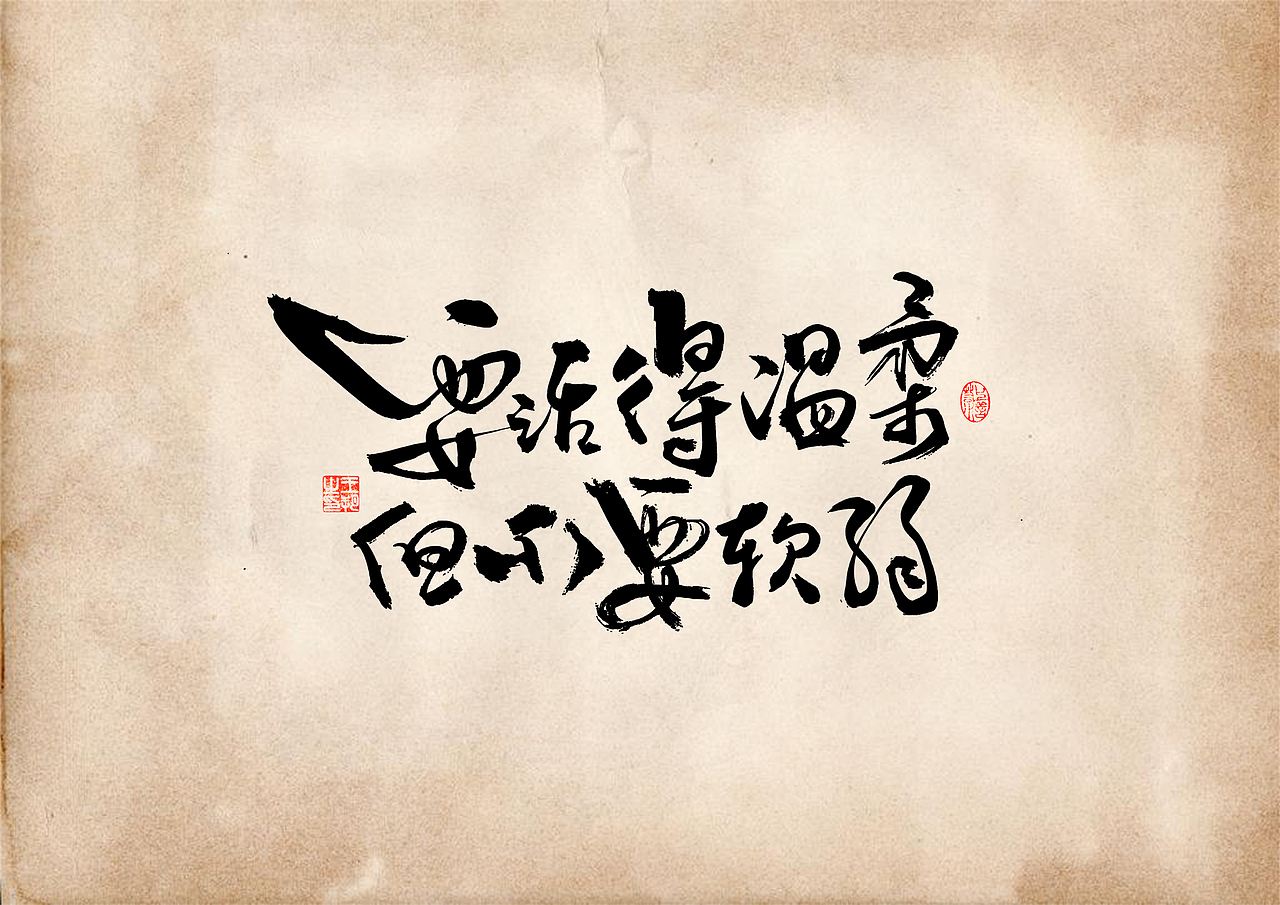 人要活得温柔
但不要软弱